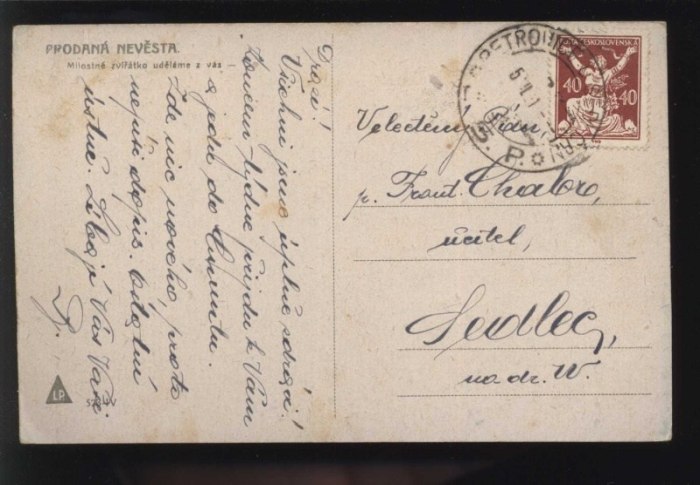 PRODANÁ NEVĚSTA.
Milostné zvířátko uděláme z vás —
Drazí!
Všichni jsme úplně zdrávi!
Koncem týdne přijdu k Vám
a jedu do
Zde nic nového, proto
nepíši dopis. Ostatní
ústně. Líbají Vás Vaši
L.P.
ČESKOSLOVENSKÁ
40 40
Velectěný Pan,
p. Frant. Chabr,
učitel,
Sedlec,
na dr. W.